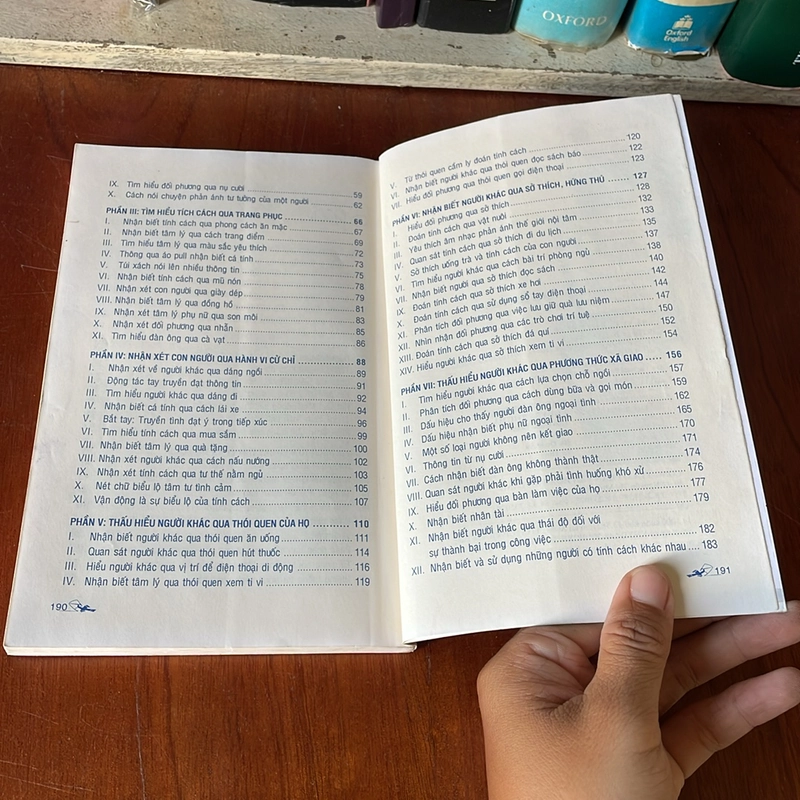 OXFORD
Oxford
English
IX. Tìm hiểu đối phương qua nụ cười 59
X. Cách nói chuyện phản ánh tư tưởng của một người 62
PHẦN III: TÌM HIỂU TÍCH CÁCH QUA TRANG PHỤC 66
I. Nhận biết tính cách qua phong cách ăn mặc 67
II. Nhận biết tâm lý qua cách trang điểm 69
III. Tìm hiểu tâm lý qua màu sắc yêu thích 72
IV. Thông qua áo pull nhận biết cá tính 73
V. Túi xách nói lên nhiều thông tin 75
VI. Nhận biết tính cách qua mũ nón 78
VII. Nhận xét con người qua giày dép 79
VIII. Nhận biết tâm lý qua đồng hồ 81
IX. Nhận xét tâm lý phụ nữ qua son môi 83
X. Nhận xét đối phương qua nhẫn 85
XI. Tìm hiểu đàn ông qua cà vạt 86
PHẦN IV: NHẬN XÉT CON NGƯỜI QUA HÀNH VI CỬ CHỈ 88
I. Nhận xét về người khác qua dáng ngồi 89
II. Động tác tay truyền đạt thông tin 91
III. Tìm hiểu người khác qua dáng đi 92
IV. Nhận biết cá tính qua cách lái xe 94
V. Bắt tay: Truyền tình đạt ý trong tiếp xúc 96
VI. Tìm hiểu tính cách qua mua sắm 99
VII. Nhận biết tâm lý qua quà tặng 100
VIII. Nhận xét người khác qua cách nấu nướng 102
IX. Nhận xét tính cách qua tư thế nằm ngủ 103
X. Nét chữ biểu lộ tâm tư tình cảm 105
XI. Vận động là sự biểu lộ của tính cách 107
PHẦN V: THẤU HIỂU NGƯỜI KHÁC QUA THÓI QUEN CỦA HỌ 110
I. Nhận biết người khác qua thói quen ăn uống 111
II. Quan sát người khác qua thói quen hút thuốc 114
III. Hiểu người khác qua vị trí để điện thoại di động 116
IV. Nhận biết tâm lý qua thói quen xem ti vi 119
190
V. Từ thói quen cầm ly đoán tính cách 120
VI. Nhận biết người khác qua thói quen đọc sách báo 122
VII. Hiểu đối phương qua thói quen gọi điện thoại 123
PHẦN VI: NHẬN BIẾT NGƯỜI KHÁC QUA SỞ THÍCH, HỨNG THÚ 127
I. Hiểu đối phương qua sở thích 128
II. Đoán tính cách qua vật nuôi 132
III. Yêu thích âm nhạc phản ánh thế giới nội tâm 133
IV. Quan sát tính cách qua sở thích đi du lịch 135
V. Sở thích uống trà và tính cách của con người 137
VI. Tìm hiểu người khác qua cách bài trí phòng ngủ 138
VII. Nhận biết người qua sở thích đọc sách 140
IX. Đoán tính cách qua sở thích xe hơi 142
X. Đoán tính cách qua sử dụng sổ tay điện thoại 144
XI. Phân tích đối phương qua việc lưu giữ quà lưu niệm 147
XII. Nhìn nhận đối phương qua các trò chơi trí tuệ 150
XIII. Đoán tính cách qua sở thích đá quí 152
XIV. Hiểu người khác qua sở thích xem ti vi 154
PHẦN VII: THẤU HIỂU NGƯỜI KHÁC QUA PHƯƠNG THỨC XÃ GIAO 156
I. Tìm hiểu người khác qua cách lựa chọn chỗ ngồi 157
II. Phân tích đối phương qua cách dùng bữa và gọi món 159
III. Dấu hiệu cho thấy người đàn ông ngoại tình 162
IV. Dấu hiệu nhận biết phụ nữ ngoại tình 165
V. Một số loại người không nên kết giao 170
VI. Thông tin từ nụ cười 171
VII. Cách nhận biết đàn ông không thành thật 174
VIII. Quan sát người khác khi gặp phải tình huống khó xử 176
IX. Hiểu đối phương qua bàn làm việc của họ 177
X. Nhận biết nhân tài 179
XI. Nhận biết người khác qua thái độ đối với
sự thành bại trong công việc 182
XII. Nhận biết và sử dụng những người có tính cách khác nhau 183
191